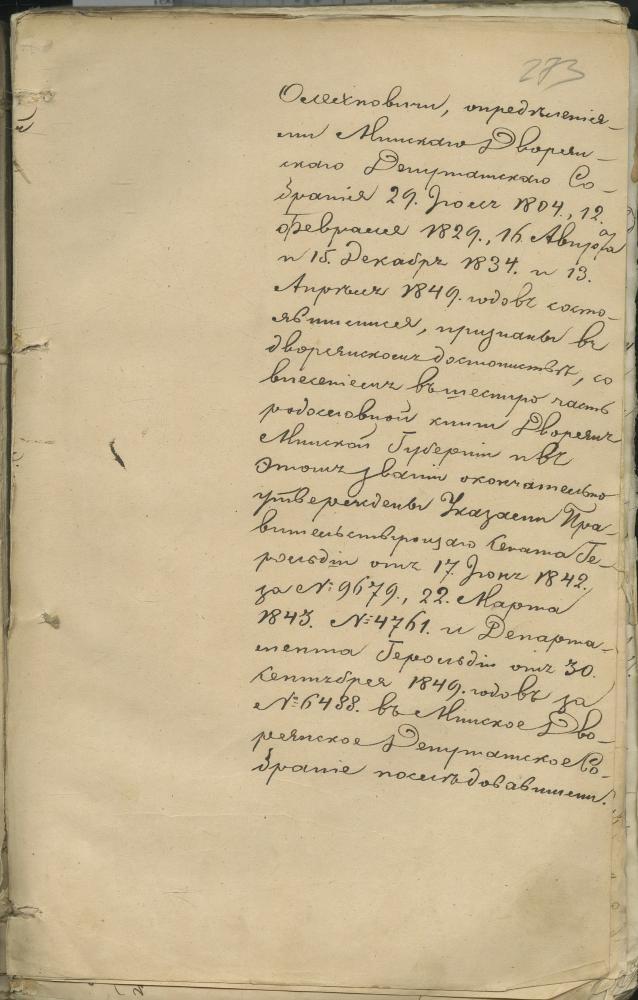 273
Олехновичи, опредѣленія-
ми Минскаго Дворян-
скаго Депутатскаго Со-
бранія 29. Іюля 1804., 12.
Февраля 1829., 16 Августа
и 15. Декабря 1834. и 13.
Апрѣля 1849. годовъ состо-
явшимися, признаны въ
дворянскомъ достоинствѣ, со
внесеніемъ въ шестую часть
родословной книги Дворянъ
Минской Губерніи и въ
этомъ званіи окончательно
утверждены Указами Пра-
вительствующаго Сената Ге-
рольдіи отъ 17. Іюня 1842.
за №: 9679., 22. Марта
1843. №: 4761. и Департа-
мента Герольдіи отъ 30.
Сентября 1849. годовъ за
№: 6488. въ Минское Дво-
рянское Депутатское Со-
браніе послѣдовавшими.